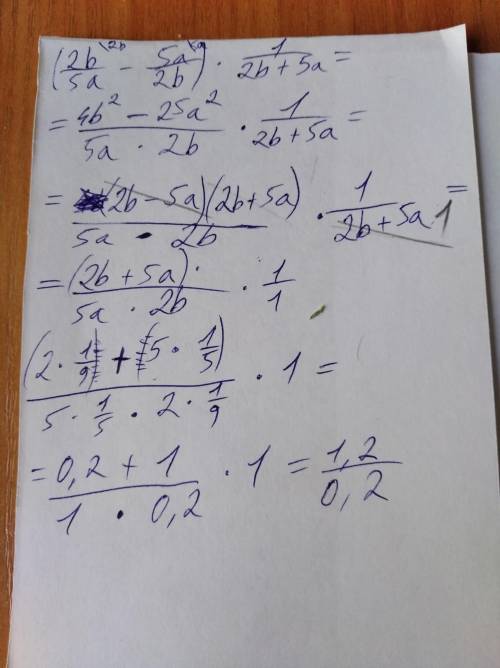 (2b/5a \2b − 5a/2b \5a) · 1/(2b+5a) =
= (4b² − 25a²)/(5a · 2b) · 1/(2b+5a) =
= (2b−5a)(2b+5a)/(5a · 2b) · 1/(2b+5a) 1 =
= (2b+5a)·/(5a · 2b) · 1/1
(2 · 1/9) + (5 · 1/5)/(5 · 1/5 · 2 · 1/9) · 1 =
= (0,2 + 1)/(1 · 0,2) · 1 = 1,2/0,2